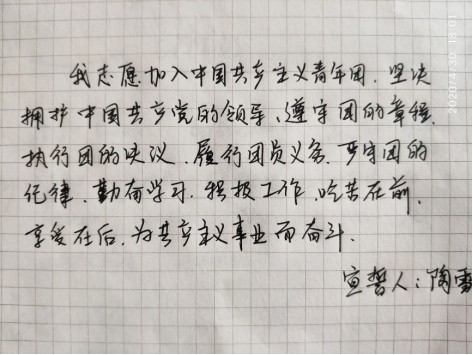 我志愿加入中国共产主义青年团，坚决
拥护中国共产党的领导、遵守团的章程，
执行团的决议、履行团员义务、严守团的
纪律、勤奋学习，积极工作、吃苦在前，
享受在后，为共产主义事业而奋斗．
宣誓人：陶
2020/4/30 18:01